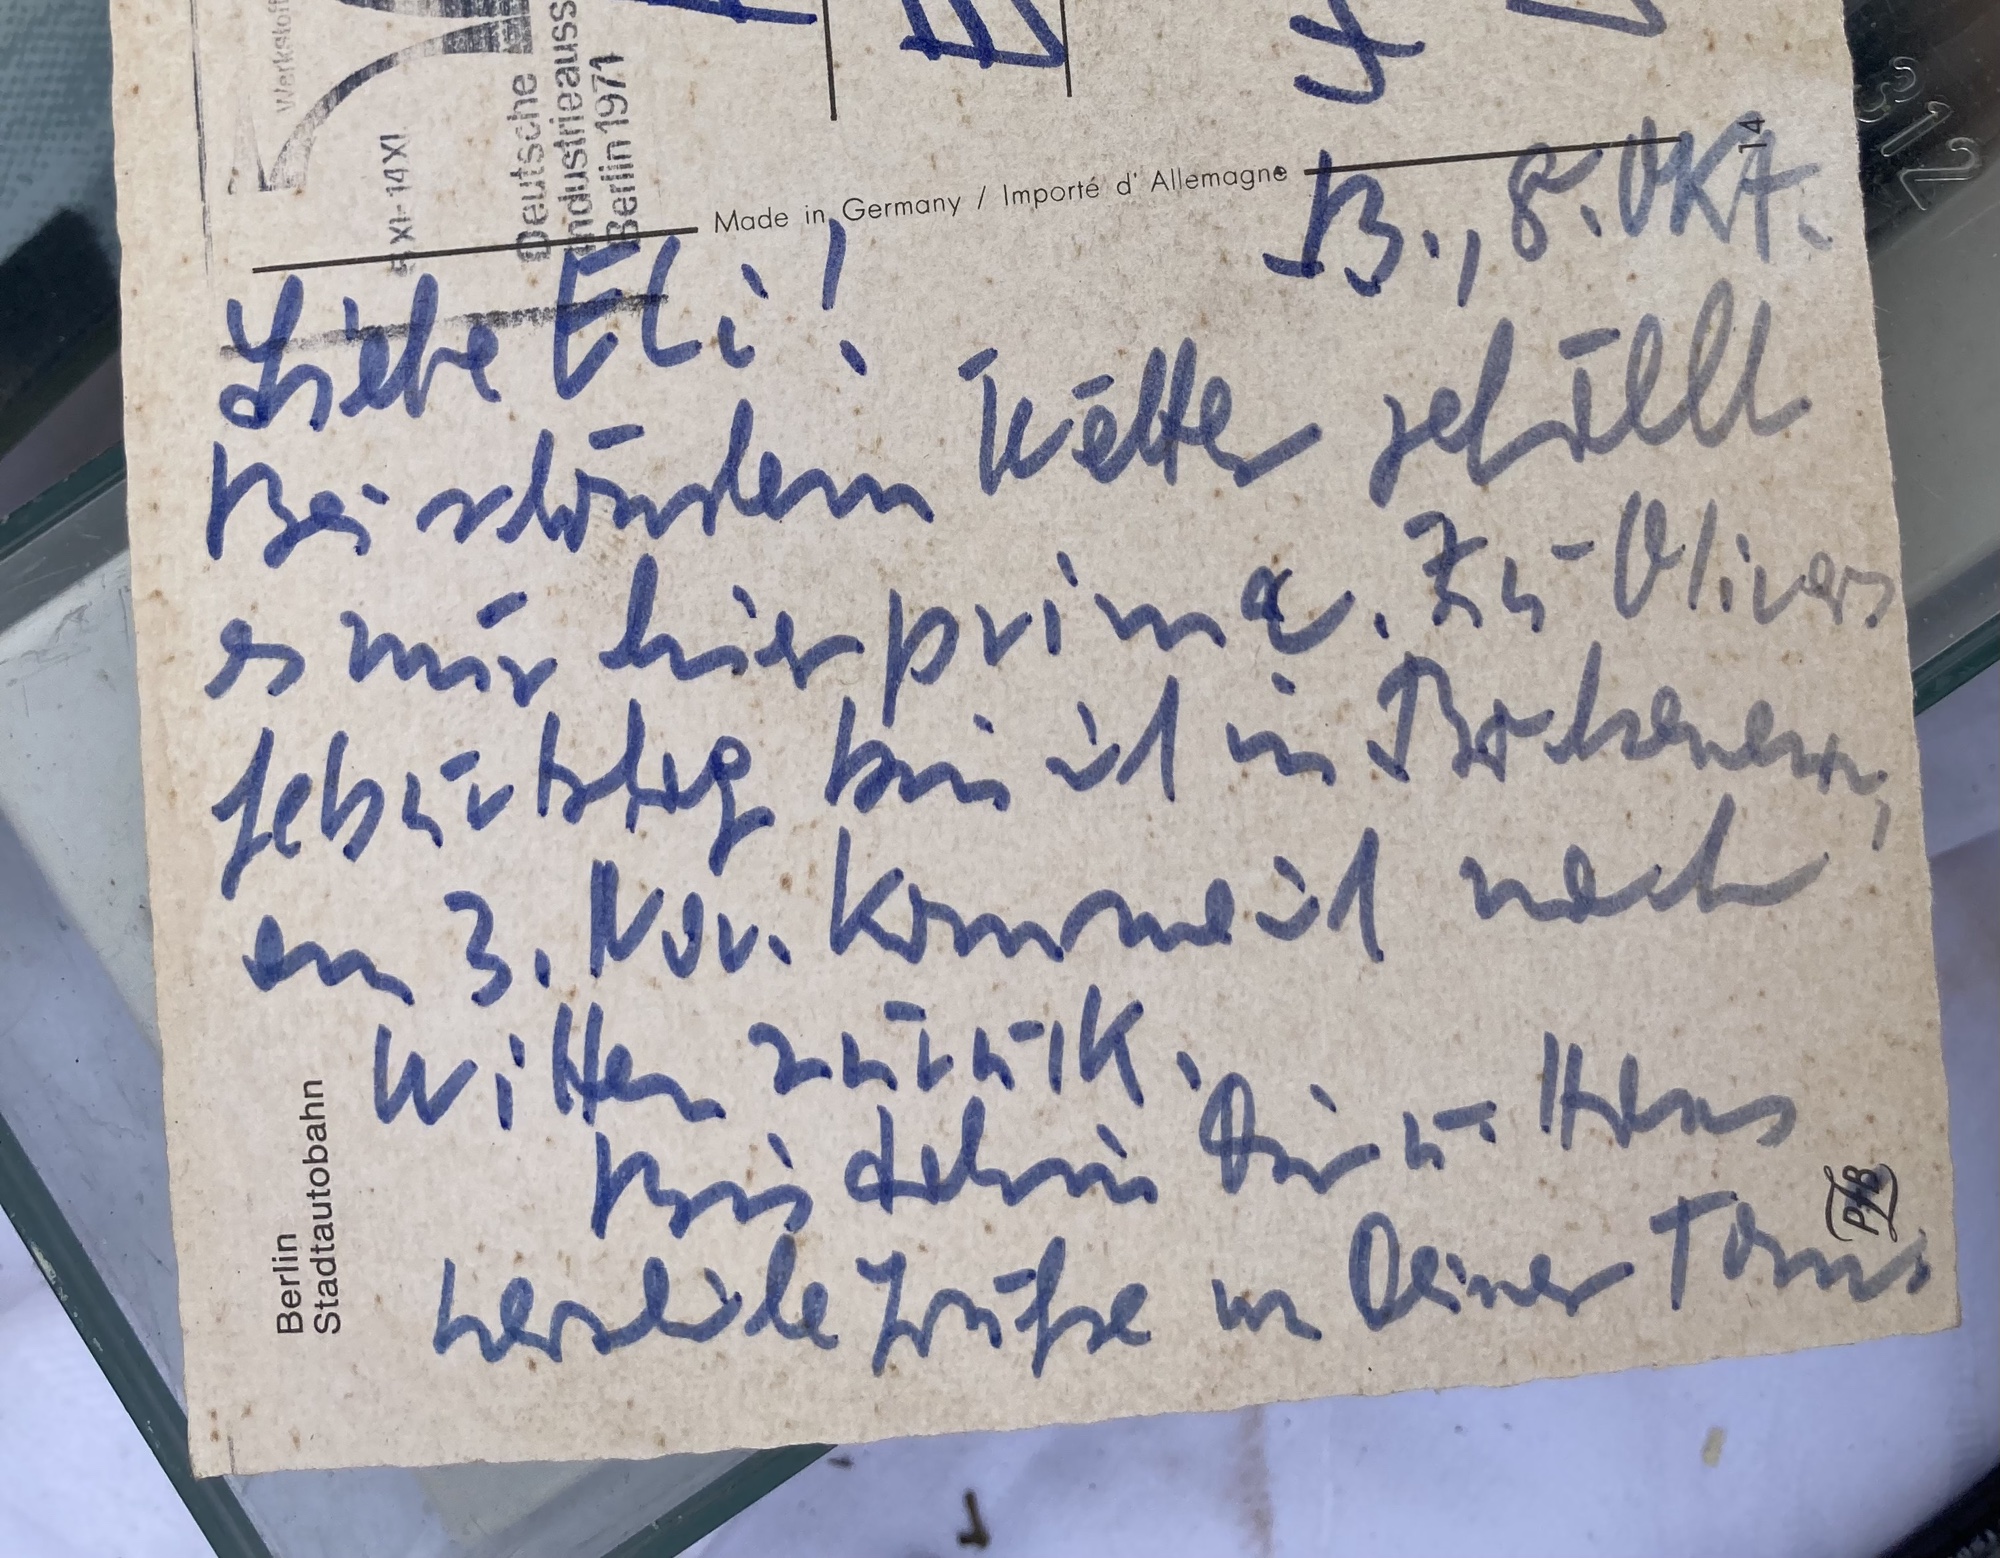 Werkstoff
5 XI-14 XI
Deutsche
Industrieauss
Berlin 1971
14
Made in Germany / Importé d' Allemagne
B., 8. OKT.
Liebe Eli!
Bei schönstem Wetter gefällt
es mir hier prima. Zu Olivers
Geburtstag bin ich in
am 3. Nov. komme ich nach
Witten zurück.
Bis dahin Dir u. Hans
herzliche Grüße von Deiner
Berlin
Stadtautobahn
PHB
312